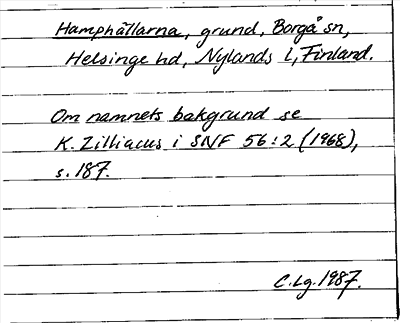 Hamphällarna, grund, Borgå sn,
Helsinge hd, Nylands l, Finland.
Om namnets bakgrund se
K. Zilliacus i SNF 56:2 (1968),
s. 187.
C. Lg. 1987.